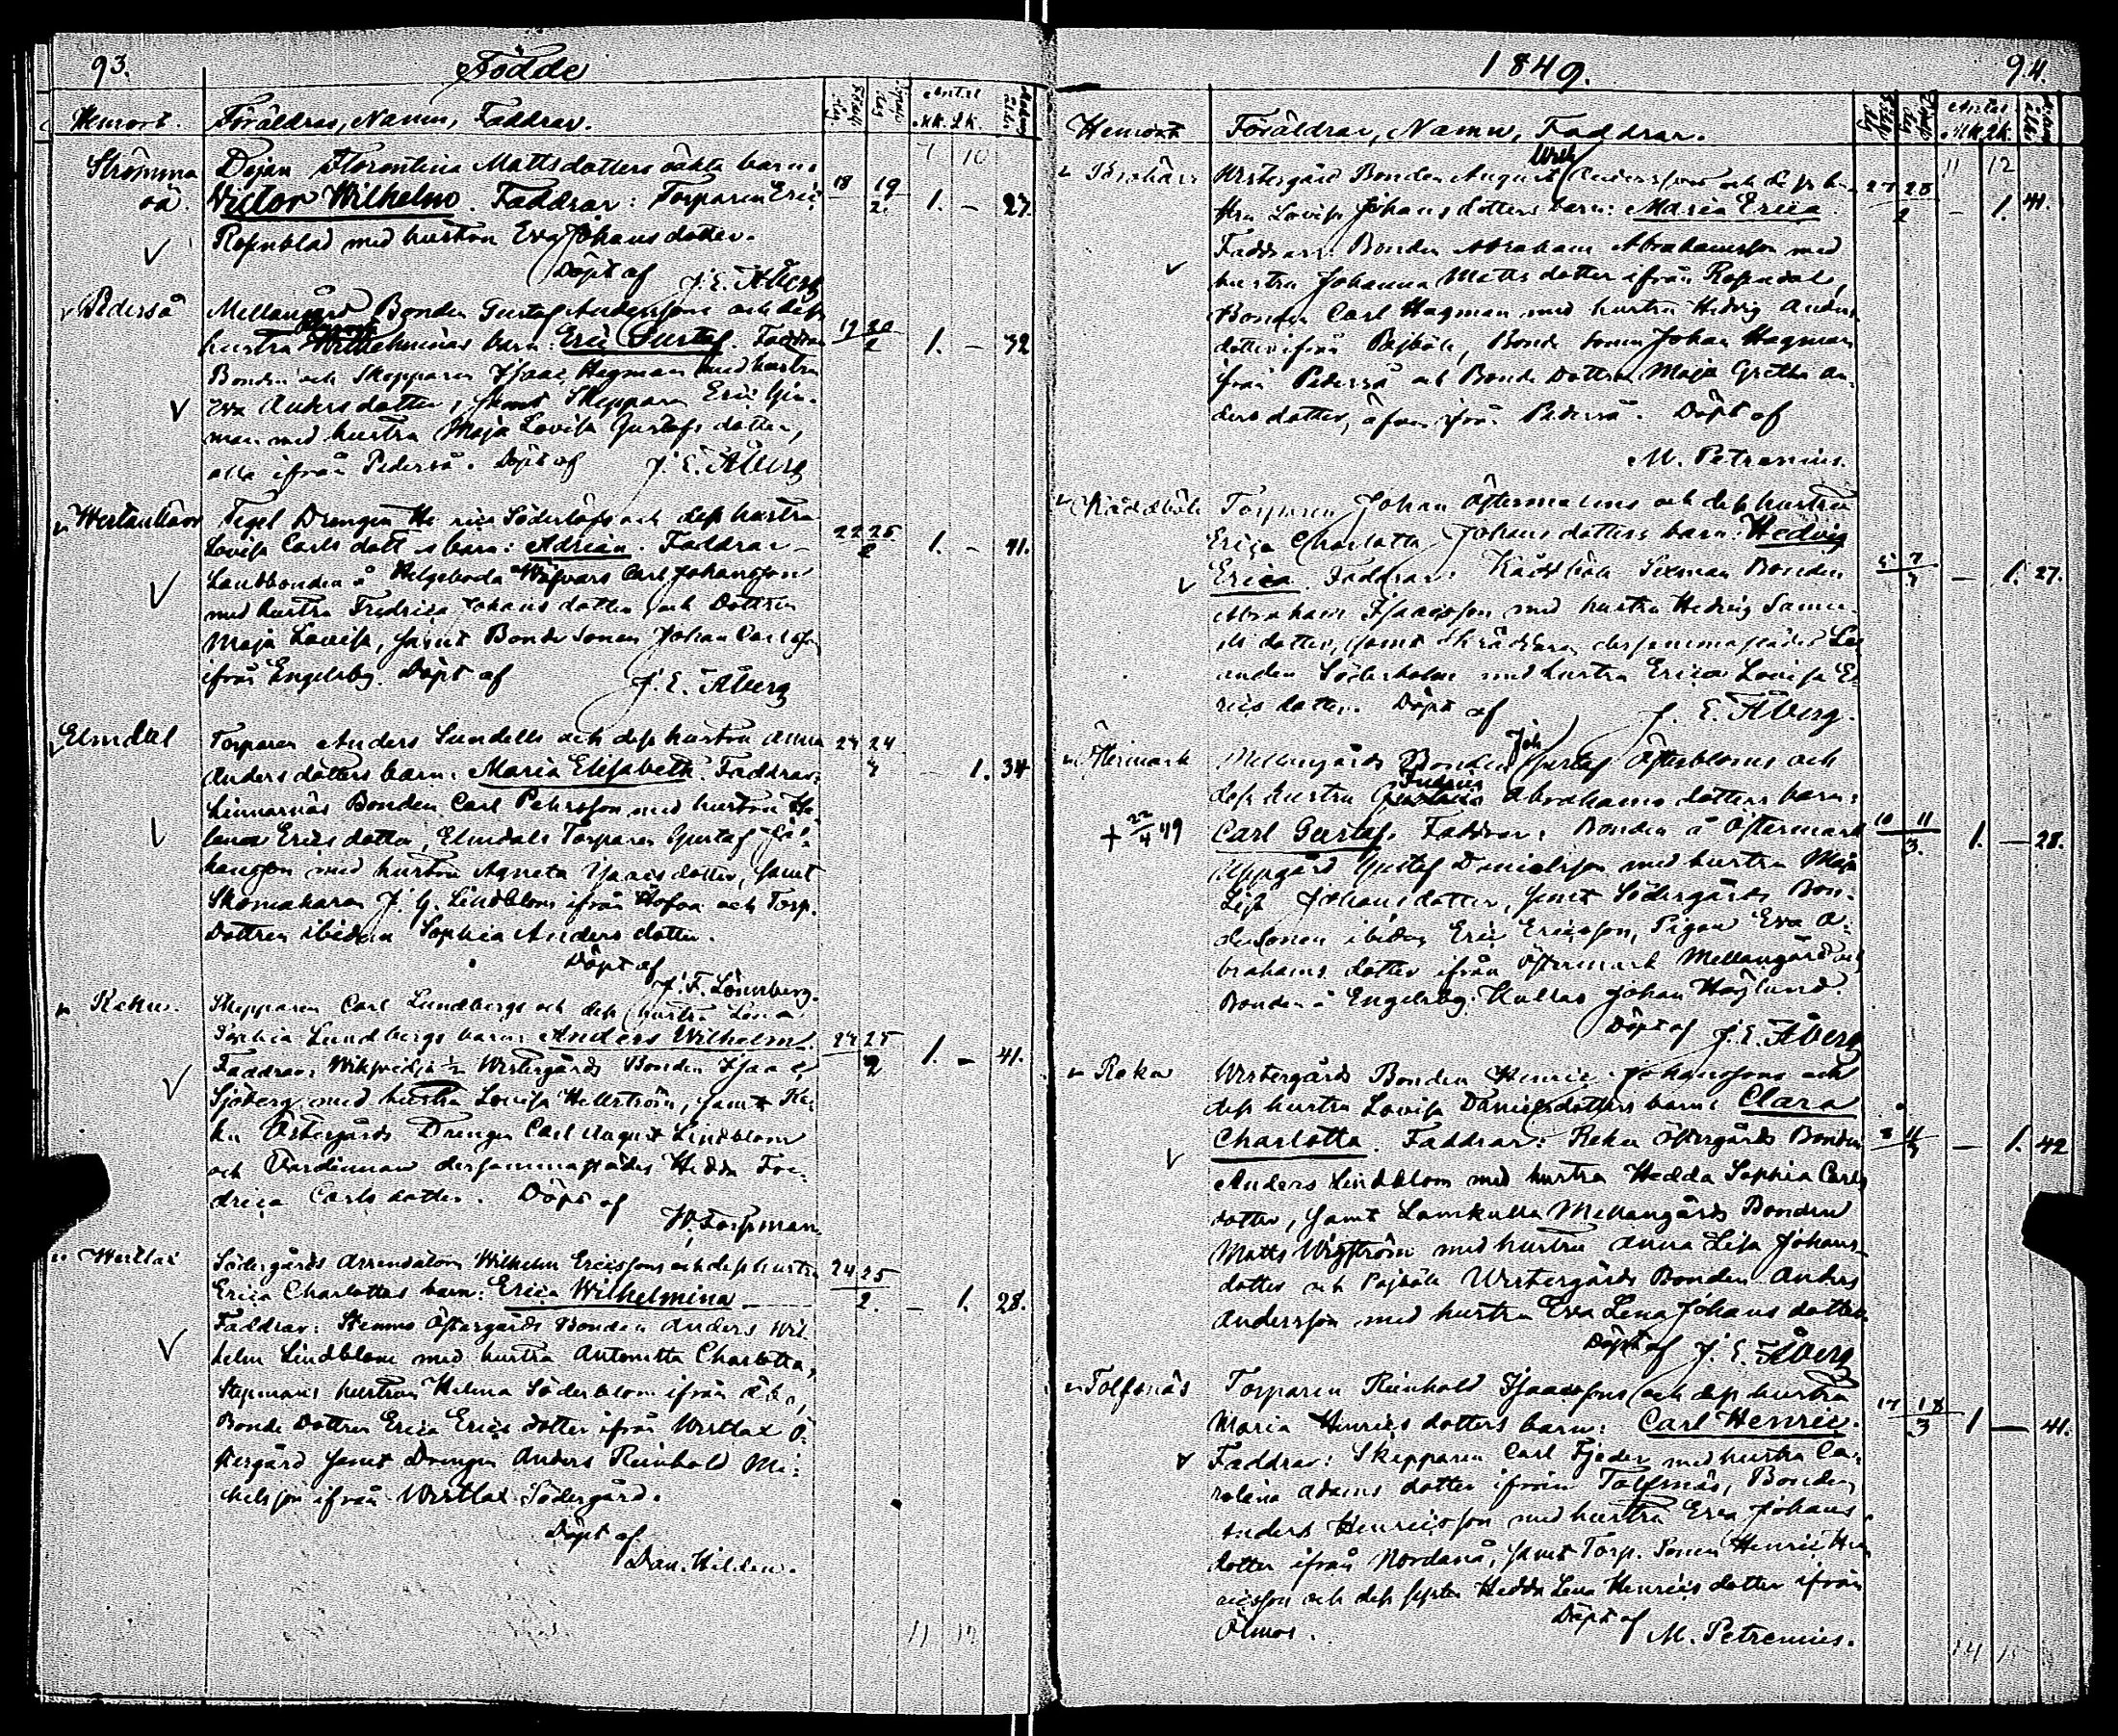 93.
Födde
Hemort. Föräldrar, Namn, Faddrar. Antal MK. QK.
7 10
Strömma Pejan Florentina Mattsdotters oäkta barn
oä. Victor Wilhelm. Faddrar: Torparen Eric 18 19/2. 1. – 27.
Rosenblad med hustru Eva Johansdotter.
Döpt af J. E. Åberg
Pederså Mellangård Bonden Gustaf Anderssons och dess
hustru Wilhelminas barn: Eric Gustaf. Faddrar 19 20/2 1. – 32
Bonden och Skepparen Isaac Hagman med hustru
Eva Andersdotter, samt Skepparen Eric
man med hustru Maja Lovisa Gustafsdotter,
alla ifrån Pederså. Döpt af J. E. Åberg
Westankärr Tegel Drengen Henric Söderlöfs och dess hustru
Lovisa Carlsdotters barn: Adrian. Faddrar 22 25/2 1. – 41.
Landbonden å Helgeboda Carl Johansson
med hustru Fredrica Johansdotter och Dottren
Maja Lovisa, samt Bonde Sonen Johan Carlsson
ifrån Engelsby. Döpt af J. E. Åberg
Elmdal Torparen Anders Sundells och dess hustru Anna 23 24
Andersdotters barn: Maria Elisabeth. Faddrar: – 1. 34
Linnarnäs Bonden Carl Pehrsson med hustru He-
lena Ericsdotter, Elmdals Torparen Gustaf Jo-
hansson med hustru Agneta Isaacsdotter, samt
Skomakaren J. G. Lindblom ifrån Hofva och Torp.
Dottren ibidem Sophia Andersdotter.
Döpt af
J. F. Lönnberg.
Reku. Skepparen Carl Lundbergs och dess hustru Lena
Sophia Lundbergs barn: Anders Wilhelm. 24 25/2 1. – 41.
Faddrar: Westergårds Bonden Isaac
Sjöberg med hustru Lovisa Hellström, samt Re-
ku Östergårds Drengen Carl August Lindblom
och dersammastädes Hedda Fre-
drica Carlsdotter. Döpt af
W. Forsman.
Westlax Södergårds Arrendatorn Wilhelm Ericssons och dess hustru
Erica Charlottas barn: Erica Wilhelmina 24 25/2. – 1. 28.
Faddrar: Stemmo Östergårds Bonden Anders Wil-
helm Lindblom med hustru Antonetta Charlotta,
Stepmans hustrun Helena Söderblom ifrån Åbo,
Bonde Dottren Erica Ericsdotter ifrån Westlax Ö-
stergård samt Drengen Anders Reinhold Mi-
chelsson ifrån Westlax Södergård.
Döpt af
Dan. Hilden.
11
1849. 94.
Hemort Föräldrar, Namn, Faddrar. Antal MK. QK.
11 12
Westergård Bonden August Wilh Anderssons och dess hu-
stru Lovisa Johansdotters barn: Maria Erica. 27 28/2 – 1. 41.
Faddrar: Bonden Abraham Abrahamsson med
hustru Johanna Mattsdotter ifrån Rosendal,
Bonden Carl Hagman med hustru Hedvig Anders-
dotter ifrån Pajböle, Bonde Sonen Johan Hagman
ifrån Pederså och Bonde Dottren Maja Gretha An-
dersdotter, äfven ifrån Pederså. Döpt af
M. Petrenius.
Råddböle Torparen Johan Östermalms och dess hustru
Erica Charlotta Johansdotters barn: Hedvig
Erica. Faddrar: Råddböle Sexman Bonden 5 7/3 – 1. 27.
Abraham Isaacsson med hustru Hedvig Samu-
elsdotter, samt Skräddaren dersammastädes Le-
ander Söderholm med hustru Erica Lovisa E-
ricsdotter. Döpt af J. E. Åberg.
Östermark Mellangårds Bonden Joh Gustaf Österbloms och
dess hustru Abrahamsdotters barn:
+ 22/4 49 Carl Gustaf. Faddrar: Bonden å Östermark 10 11/3. 1. – 28.
Uppgård Gustaf Danielsson med hustru Maja
Lisa Johansdotter, samt Södergårds Bon-
desonen ibidem Eric Ericsson, Pigan Eva A-
brahamsdotter ifrån Östermark Mellangård och
Bonden å Engelsby Kullas Johan Höglund.
Döpt af J. E. Åberg
Reku Westergårds Bonden Henric Johanssons och
dess hustru Lovisa Danielsdotters barn: Clara
Charlotta. Faddrar: Reku Östergårds Bonden 8 11/3 – 1. 42
Anders Lindblom med hustru Hedda Sophia Carls-
dotter, samt Lamkulla Mellangårds Bonden
Matts Wigström med hustru Anna Lisa Johans-
dotter och Pajböle Westergårds Bonden Anders
Andersson med hustru Eva Lena Johansdotter.
Döpt af J. E. Åberg
Tolfsnäs Torparen Reinhold Isaacssons och dess hustru
Maria Henricsdotters barn: Carl Henric. 17 18/3 1 – 41.
Faddrar: Skepparen Carl Fjeder med hustru Ca-
rolina Adamsdotter ifrån Tolfsnäs, Bonden
Anders Henricsson med hustru Eva Johans-
dotter ifrån Nordanå, samt Torp. Sonen Henric Hen-
ricsson och dess syster Hedda Lena Henricsdotter ifrån
Ölmos. Döpt af M. Petrenius.
14 15